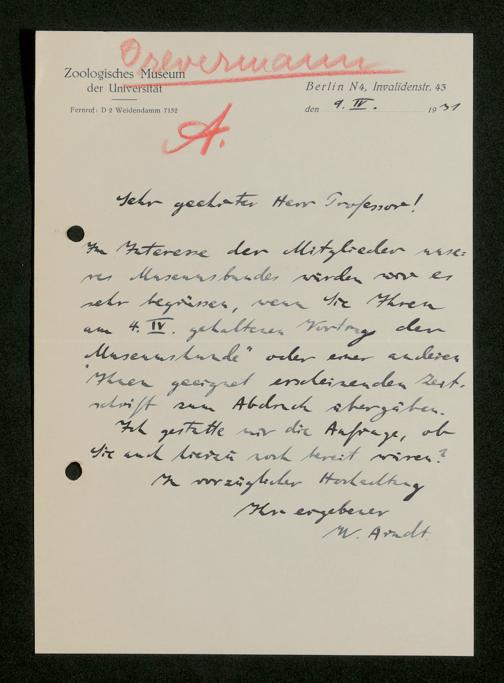 Drevermann
Zoologisches Museum
der Universität
Fernruf: D 2 Weidendamm 7152
Berlin N4, Invalidenstr. 43
den 9. IV. 1931
A.
Sehr geehrter Herr Professor!
Im Interesse der Mitglieder unse-
res Museumsbundes würden wir es
sehr begrüssen, wenn Sie Ihren
am 4. IV. gehaltenen Vortrag der
„Museumskunde" oder einer anderen
Ihnen geeignet erscheinenden Zeit-
schrift zum Abdruck übergäben.
Ich gestatte mir die Anfrage, ob
Sie auch hierzu noch bereit wären?
In vorzüglicher Hochachtung
Ihr ergebener
W. Arndt